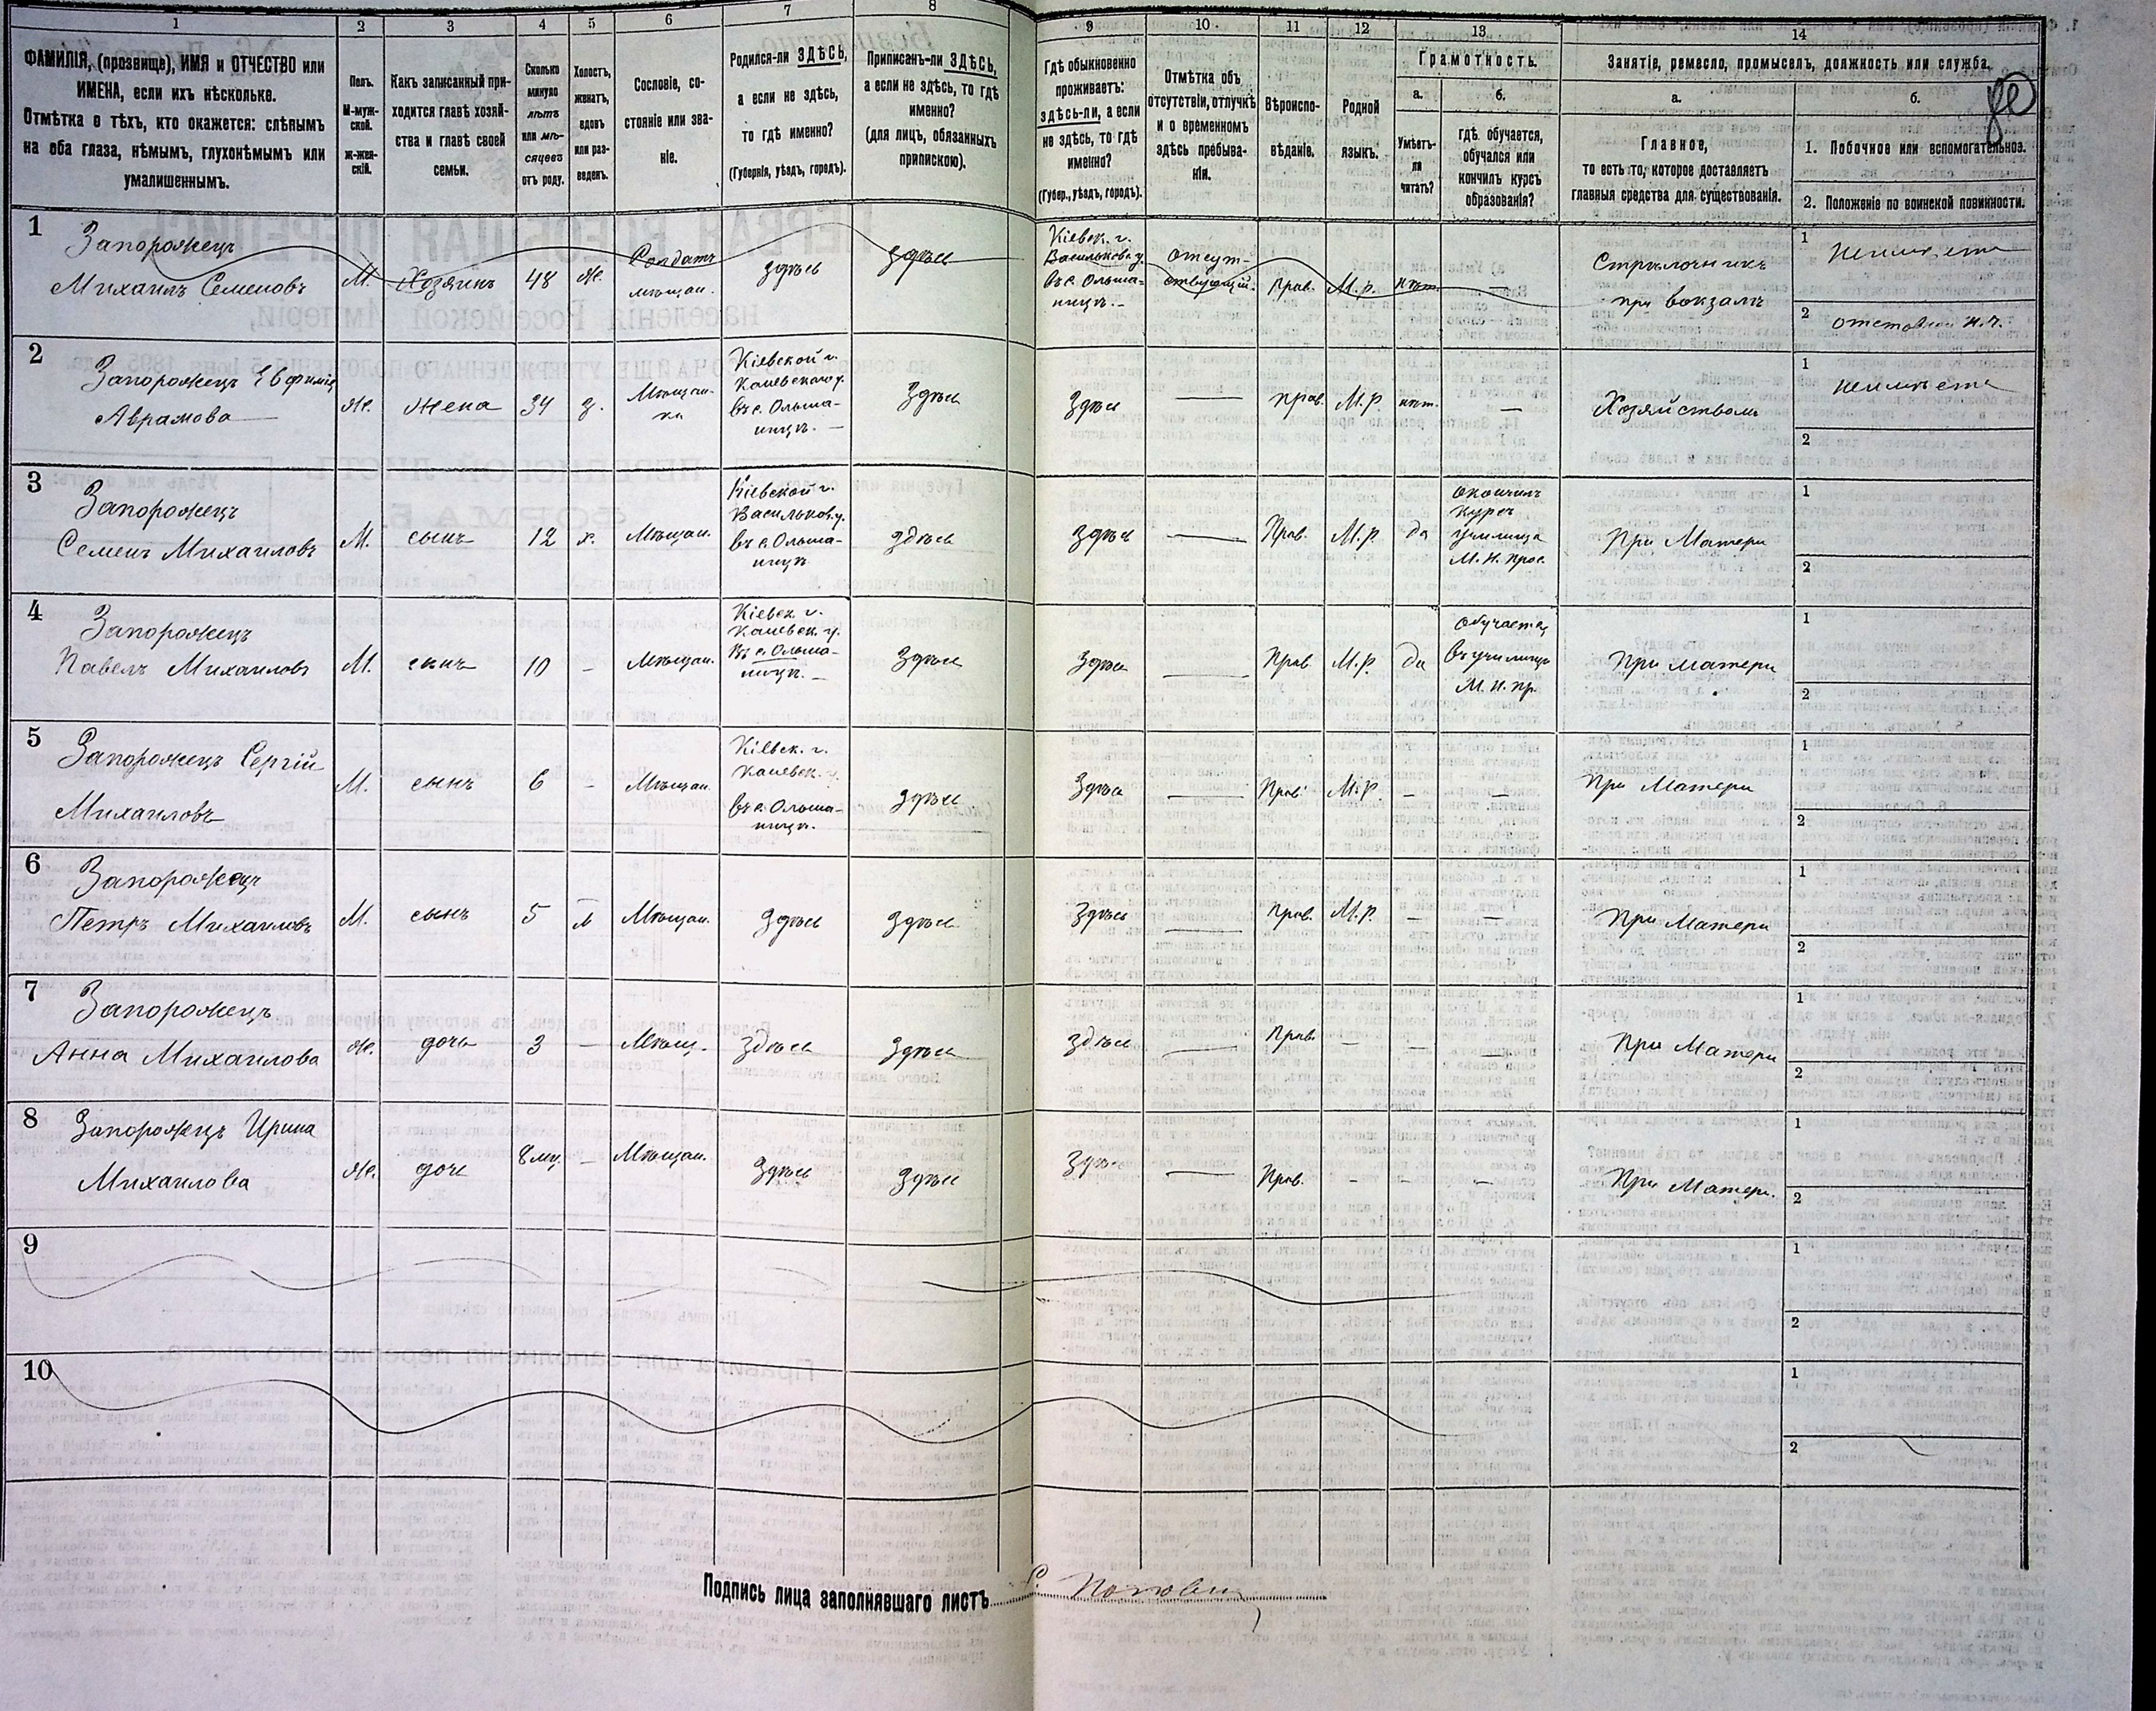 1 2 3 4 5 6 7 8 9 10 11 12 13 14
ФАМИЛІЯ, (прозвище), ИМЯ и ОТЧЕСТВО или
ИМЕНА, если ихъ нѣсколько.
Отмѣтка о тѣхъ, кто окажется: слѣпымъ
на оба глаза, нѣмымъ, глухонѣмымъ или
умалишеннымъ.
Полъ.
М-муж-
ской.
ж-жен-
скій.
Какъ записанный при-
ходится главѣ хозяй-
ства и главѣ своей
семьи.
Сколько
минуло
лѣтъ
или мѣ-
сяцевъ
отъ роду.
Холостъ,
женатъ,
вдовъ
или раз-
веденъ.
Сословіе, со-
стояніе или зва-
ніе.
Родился-ли ЗДѢСЬ,
а если не здѣсь,
то гдѣ именно?
(Губернія, уѣздъ, городъ).
Приписанъ-ли ЗДѢСЬ,
а если не здѣсь, то гдѣ
именно?
(для лицъ, обязанныхъ
припискою).
Гдѣ обыкновенно
проживаетъ:
здѣсь-ли, а если
не здѣсь, то гдѣ
именно?
(Губер., уѣздъ, городъ).
Отмѣтка объ
отсутствіи, отлучкѣ
и о временномъ
здѣсь пребыва-
ніи.
Вѣроиспо-
вѣданіе.
Родной
языкъ.
Грамотность.
а.
Умѣетъ-
ли
читать?
б.
гдѣ обучается,
обучался или
кончилъ курсъ
образованія?
Занятіе, ремесло, промыселъ, должность или служба.
а.
Главное,
то есть то, которое доставляетъ
главныя средства для существованія.
б.
1. Побочное или вспомогательное.
2. Положеніе по воинской повинности.
1
Запорожецъ
Михаилъ Семеновъ
М.
Хозяинъ
48
ж.
Солдатъ
мѣщан.
здѣсь
здѣсь
Кіевск. г.
Васильков. у.
въ с. Ольша-
ницѣ.
Отсут-
ствующій.
Прав.
М.р.
нѣт.
—
Стрѣлочникъ
при вокзалѣ
1
2
2
Запорожецъ Евфимія
Аврамова
Ж.
жена
34
з.
Мѣщан-
ка
Кіевской г.
Каневскаго у.
въ с. Ольша-
ницѣ.
Здѣсь
Здѣсь
—
прав.
М.р.
нѣт.
—
Хозяйствомъ
1
2
3
Запорожецъ
Семенъ Михаиловъ
М.
сынъ
12
х.
Мѣщан.
Кіевской г.
Васильков. у.
въ с. Ольша-
ницѣ
здѣсь
здѣсь
—
Прав.
М.р
да
окончилъ
курсъ
училища
М. Н. Прос.
При Матери
1
2
4
Запорожецъ
Павелъ Михаиловъ
М.
сынъ
10
-
Мѣщан.
Кіевск. г.
Каневск. у.
Въ с. Ольша-
ницѣ.
Здѣсь
Здѣсь
—
Прав
М.р.
да
обучается
въ училищѣ
М. Н. пр.
При матери
1
2
5
Запорожецъ Сергій
Михаиловъ
М.
сынъ
6
-
Мѣщан.
Кіевск. г.
Каневск. у.
въ с. Ольша-
ницѣ.
здѣсь
Здѣсь
—
Прав.
М.р.
—
—
При Матери
1
2
6
Запорожецъ
Петръ Михаиловъ
М.
сынъ
5
Мѣщан.
здѣсь
здѣсь
Здѣсь
—
Прав.
М.р.
—
—
При Матери
1
2
7
Запорожецъ
Анна Михаилова
Ж.
дочь
3
—
Мѣщ.
Здѣсь
Здѣсь
здѣсь
—
Прав.
—
—
—
При Матери
1
2
8
Запорожецъ Ирина
Михаилова
Ж.
дочь
8 мц.
—
Мѣщан.
Здѣсь
Здѣсь
Здѣсь
—
Прав.
-
-
-
При Матери.
1
2
9
1
2
10
1
2
Подпись лица заполнявшаго листъ